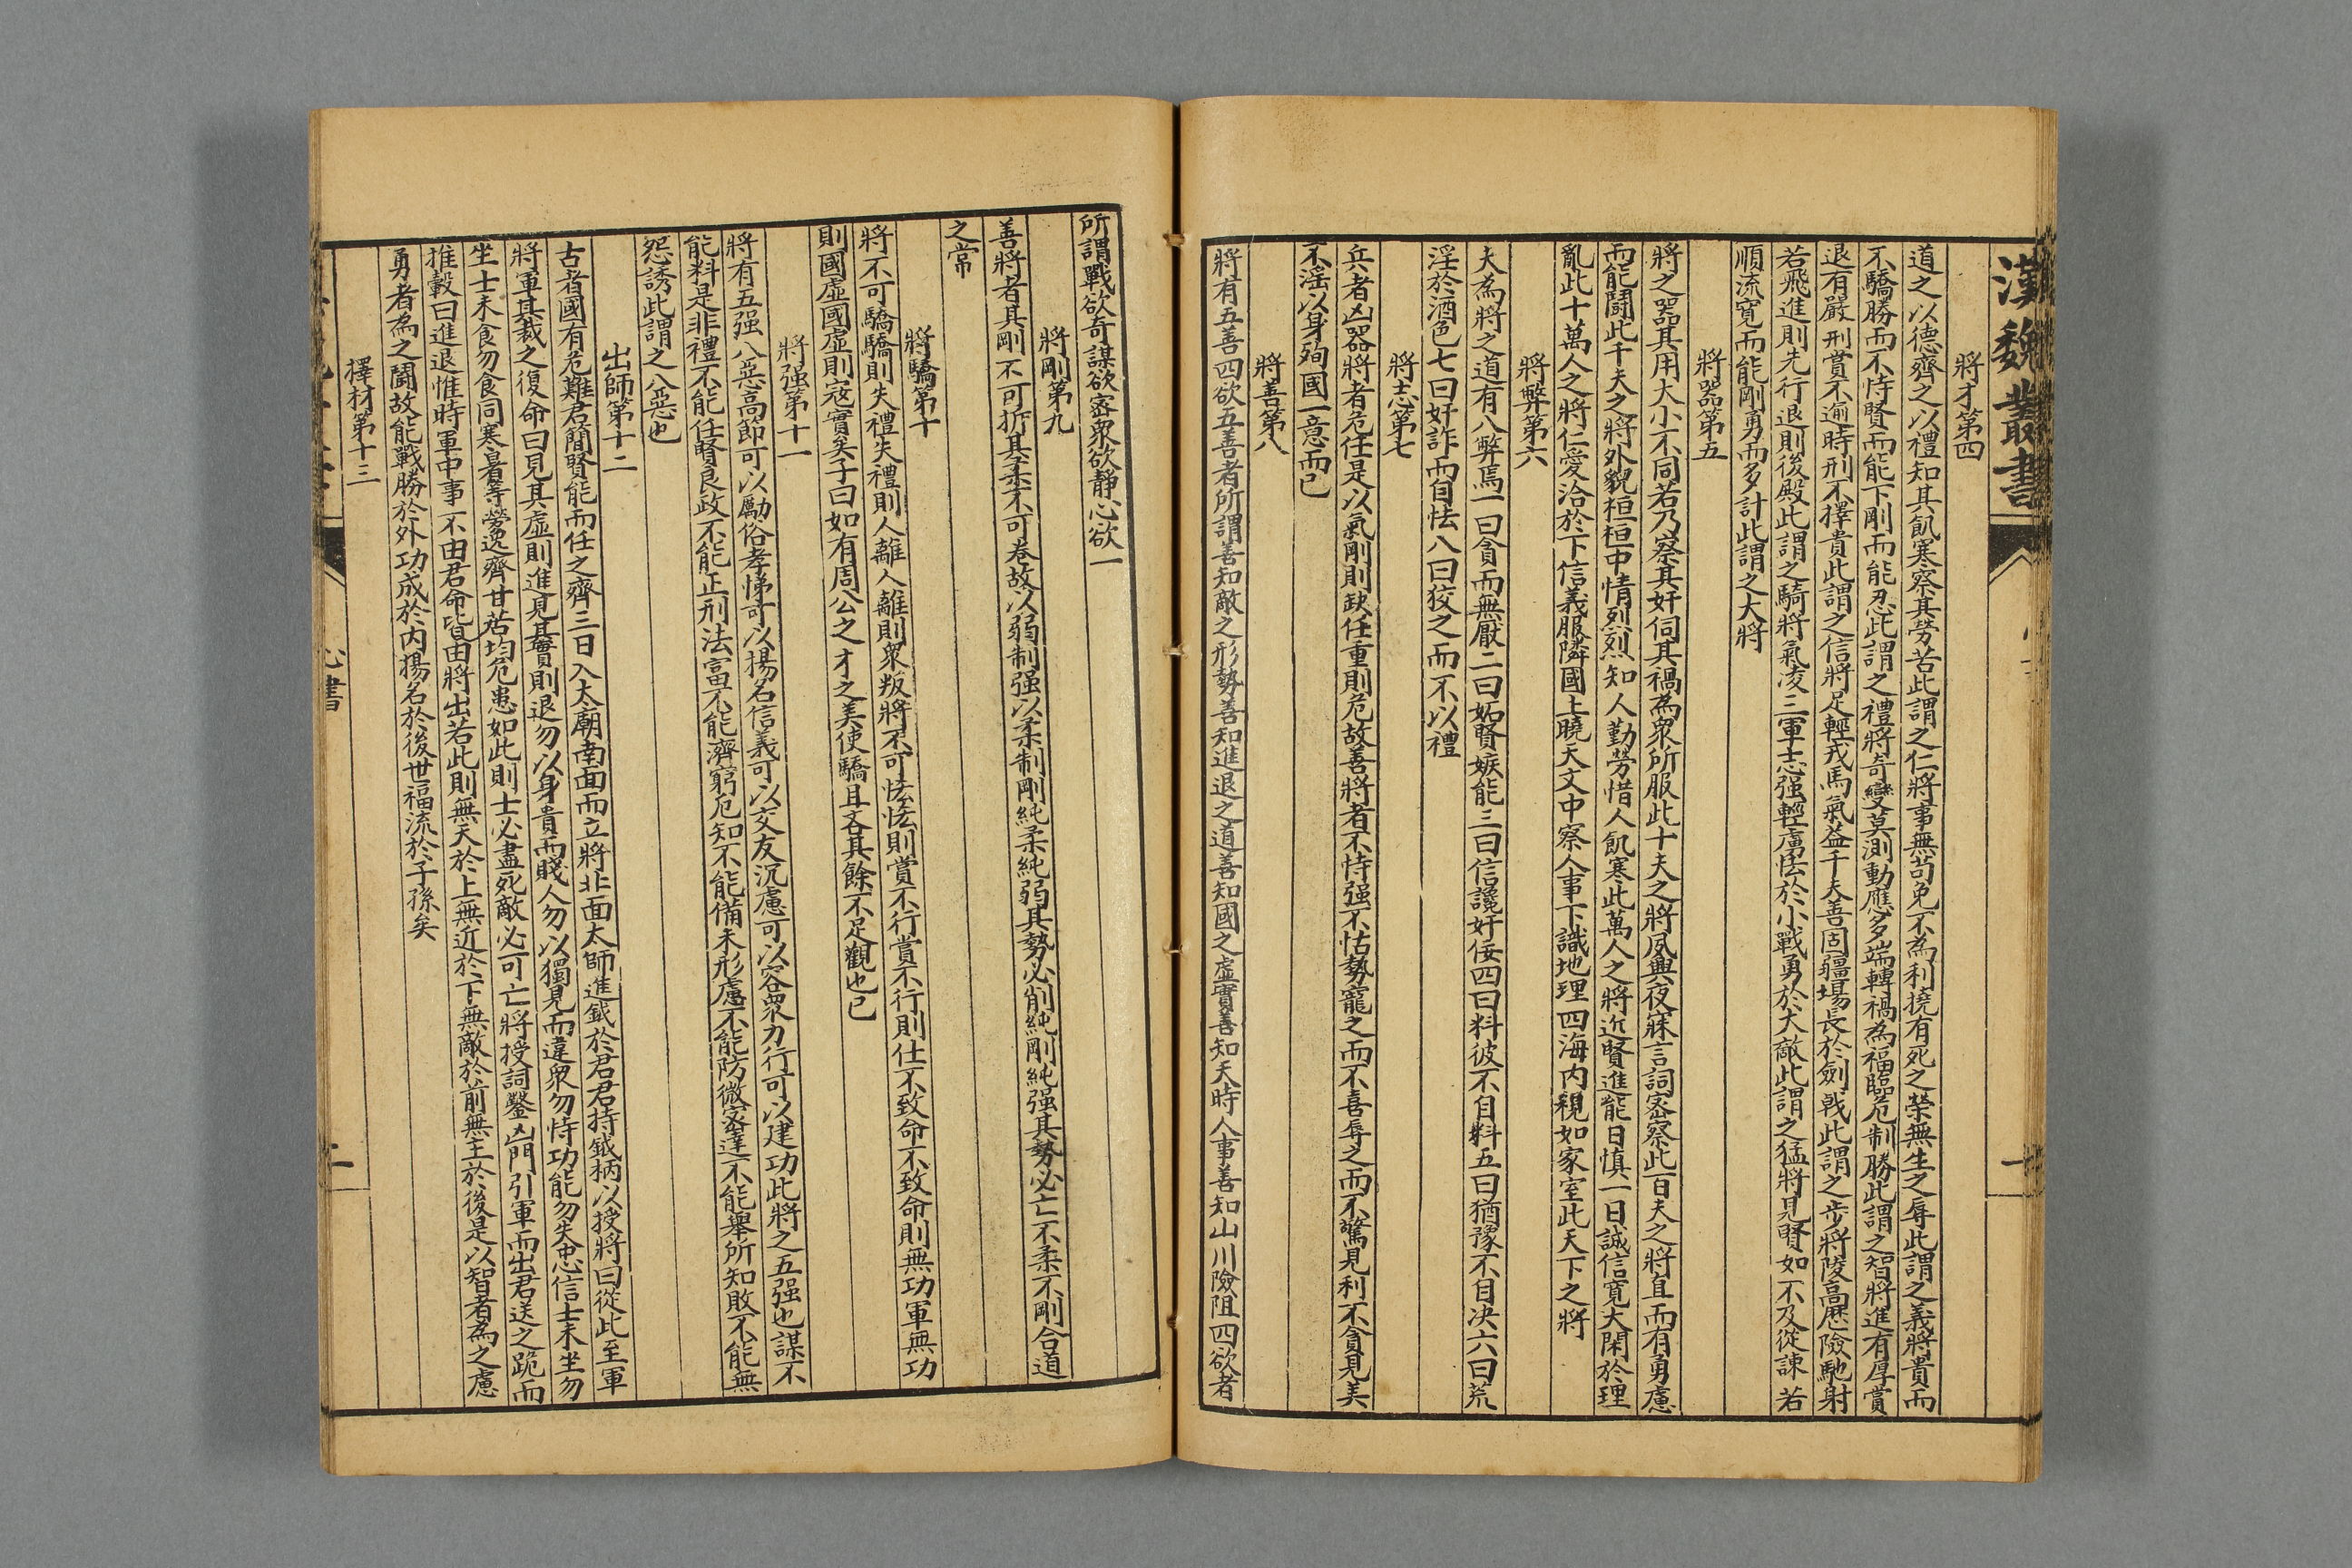 漢魏叢書
一
將才第四
道之以德齊之以禮知其飢寒察其勞苦此謂之仁將事無苟免不為利撓有死之榮無生之辱此謂之義將貴而
不驕勝而不恃賢而能下剛而能忍此謂之禮將奇變莫測動應多端轉禍為福臨危制勝此謂之智將進有厚賞
退有嚴刑賞不逾時刑不擇貴此謂之信將足輕戎馬氣蓋千夫善固疆場長於劍戟此謂之步將陵高歷險馳射
若飛進則先行退則後殿此謂之騎將氣凌三軍志强輕虜怯於小戰勇於大敵此謂之猛將見賢如不及從諫若
順流寬而能剛勇而多計此謂之大將
將器第五
將之器其用大小不同若乃察其奸伺其禍為衆所服此十夫之將夙興夜寐言詞密察此百夫之將直而有勇慮
而能鬪此千夫之將外貌桓桓中情烈烈知人勤勞惜人飢寒此萬人之將近賢進能日慎一日誠信寬大閑於理
亂此十萬人之將仁愛洽於下信義服隣國上曉天文中察人事下識地理四海内視如家室此天下之將
將弊第六
夫為將之道有八弊焉一曰貪而無厭二曰妬賢嫉能三曰信讒奸佞四曰料彼不自料五曰猶豫不自决六曰荒
淫於酒色七曰奸詐而自怯八曰狡之而不以禮
將志第七
兵者凶器將者危任是以氣剛則缺任重則危故善將者不恃强不怙勢寵之而不喜辱之而不驚見利不貪見美
不淫以身殉國一意而已
將善第八
將有五善四欲五善者所謂善知敵之形勢善知進退之道善知國之虛實善知天時人事善知山川險阻四欲者
所謂戰欲奇謀欲密衆欲靜心欲一
將剛第九
善將者其剛不可折其柔不可卷故以弱制强以柔制剛純柔純弱其勢必削純剛純强其勢必亡不柔不剛合道
之常
將驕第十
將不可驕驕則失禮失禮則人離人離則衆叛將不可恡恡則賞不行賞不行則仕不致命不致命則無功軍無功
則國虛國虛則寇實矣子曰如有周公之才之美使驕且吝其餘不足觀也已
將强第十一
將有五强八惡高節可以勵俗孝悌可以揚名信義可以交友沉慮可以容衆力行可以建功此將之五强也謀不
能料是非禮不能任賢良政不能正刑法富不能濟窮厄知不能備未形慮不能防微密達不能舉所知敗不能無
怨誘此謂之八惡也
出師第十二
古者國有危難君簡賢能而任之齊三日入太廟南面而立將北面太師進鉞於君君持鉞柄以授將曰從此至軍
將軍其裁之復命曰見其虛則進見其實則退勿以身貴而賤人勿以獨見而違衆勿恃功能勿失忠信士未坐勿
坐士未食勿食同寒暑等勞逸齊甘苦均危患如此則士必盡死敵必可亡將授詞鑿凶門引軍而出君送之跪而
推轂曰進退惟時軍中事不由君命皆由將出若此則無天於上無近於下無敵於前無主於後是以智者為之慮
勇者為之鬪故能戰勝於外功成於内揚名於後世福流於子孫矣
擇材第十三
心書
二